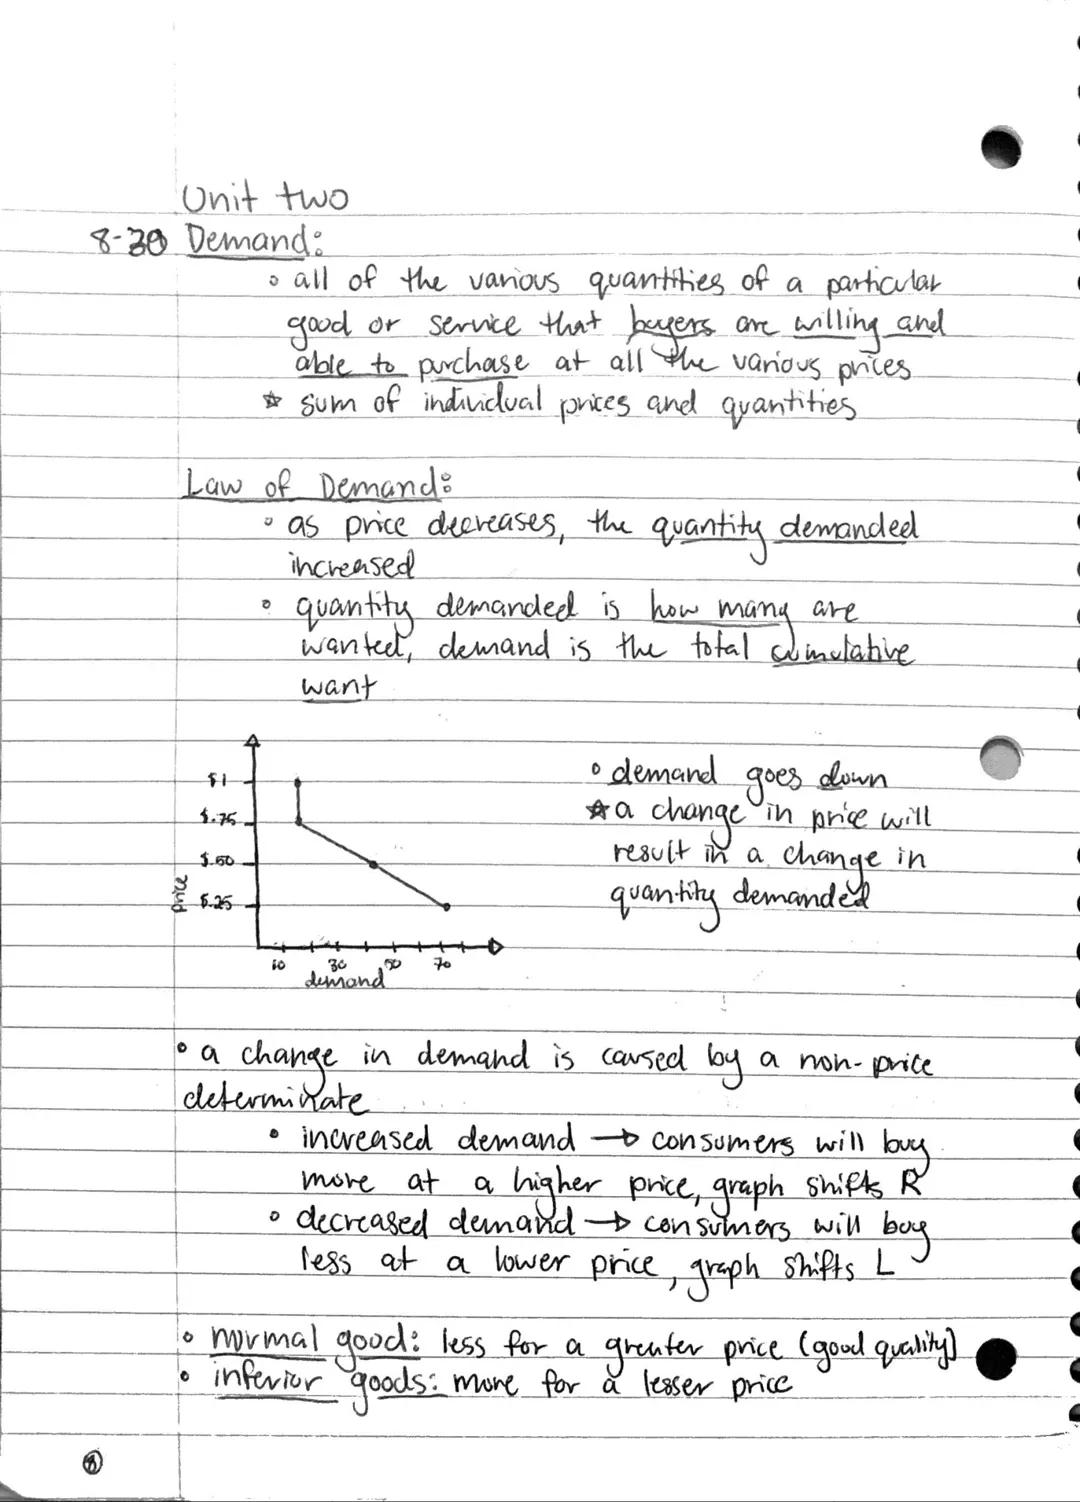 Unit two
8-30 Demand:
◦ all of the various quantities of a particular
good or service that buyers are willing and
able to purchase at all the various prices
☆ sum of individual prices and quantities
Law of Demand:
◦ as price decreases, the quantity demanded
increased
◦ quantity demanded is how many are
wanted, demand is the total cumulative
want
$1
$.75
$.50
$.25
price
10 30 50 70
demand
◦ demand goes down
☆ a change in price will
result in a change in
quantity demanded
• a change in demand is caused by a non-price
determinate
• increased demand → consumers will buy
more at a higher price, graph shifts R
◦ decreased demand → consumers will buy
less at a lower price, graph shifts L
• normal good: less for a greater price (good quality)
• inferior goods: more for a lesser price
8